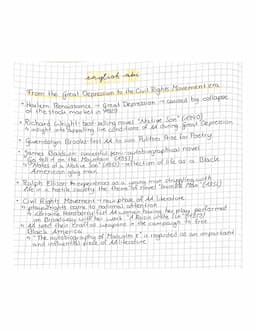 english -
From the Great Depression to the Civil Rights Movement era
• Harlem Renaissance → Great Depression → caused by collapse
of the stock market in 1929
• Richard Wright: best selling novel "Native Son" (1940)
↳ insight into appalling live conditions of AA during Great Depression
• Gwendolyn Brooks: first AA to win Pulitzer Prize for Poetry
• James Baldwin: successful semi-autobiographical novel
"Go tell it on the Mountain" (1953)
↳ "Notes of a Native Son" (1955): reflection of life as a Black
American gay man
• Ralph Ellison: experiences as a young man struggling with
life in a hostile society the theme of novel "Invisible Man" (1952)
• Civil Rights Movement → new phase of AA literature
↳ playwrights came to national attention
↳ Lorraine Hansberry: first AA woman having her play performed
on Broadway with her work "A Raisin in the Sun" (1959)
↳ AA used their craft as weapons in the campaign to free
Black America
↳ "The autobiography of Malcolm X" is regarded as an important
and influential piece of AA literature